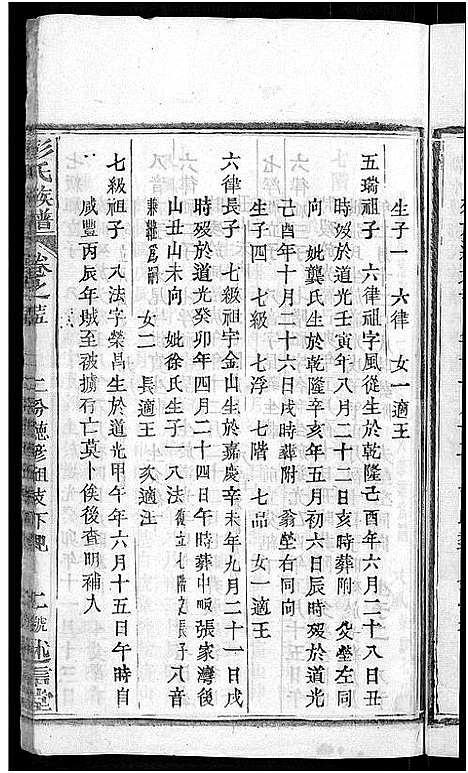 生子一 六律 女一適王
五瑞祖子 六律祖字風從生於乾隆己酉年六月二十八日丑
時歿於道光壬寅年八月二十二日亥時葬附父塋左同
向 妣龔氏生於乾隆辛亥年五月初六日辰時歿於道光
己酉年十月二十六日戌時葬附 翁塋右同向
生子四 七級 七浮 七階 七品 女一適王
六律長子 七級祖字金山生於嘉慶辛未年九月二十一日戌
時歿於道光癸卯年四月二十四日午時葬中畈張家灣後
山丑山未向 妣徐氏生子一 八法 復立七階之長子八音
兼祧爲嗣 女二 長適王 次適汪
七級祖子 八法字榮昌生於道光甲午年六月十五日午時自
咸豐丙辰年賊至被擄存亡莫卜俟後查明補入
彭氏族譜 卷之 二分 祖支下 號 述信堂